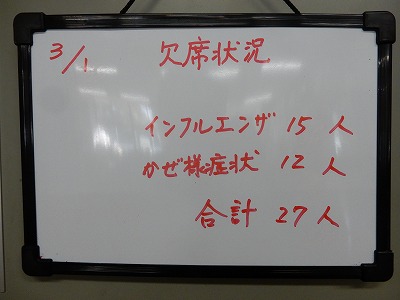 3/1 欠席状況
インフルエンザ 15 人
かぜ様症状 12 人
合計 27人